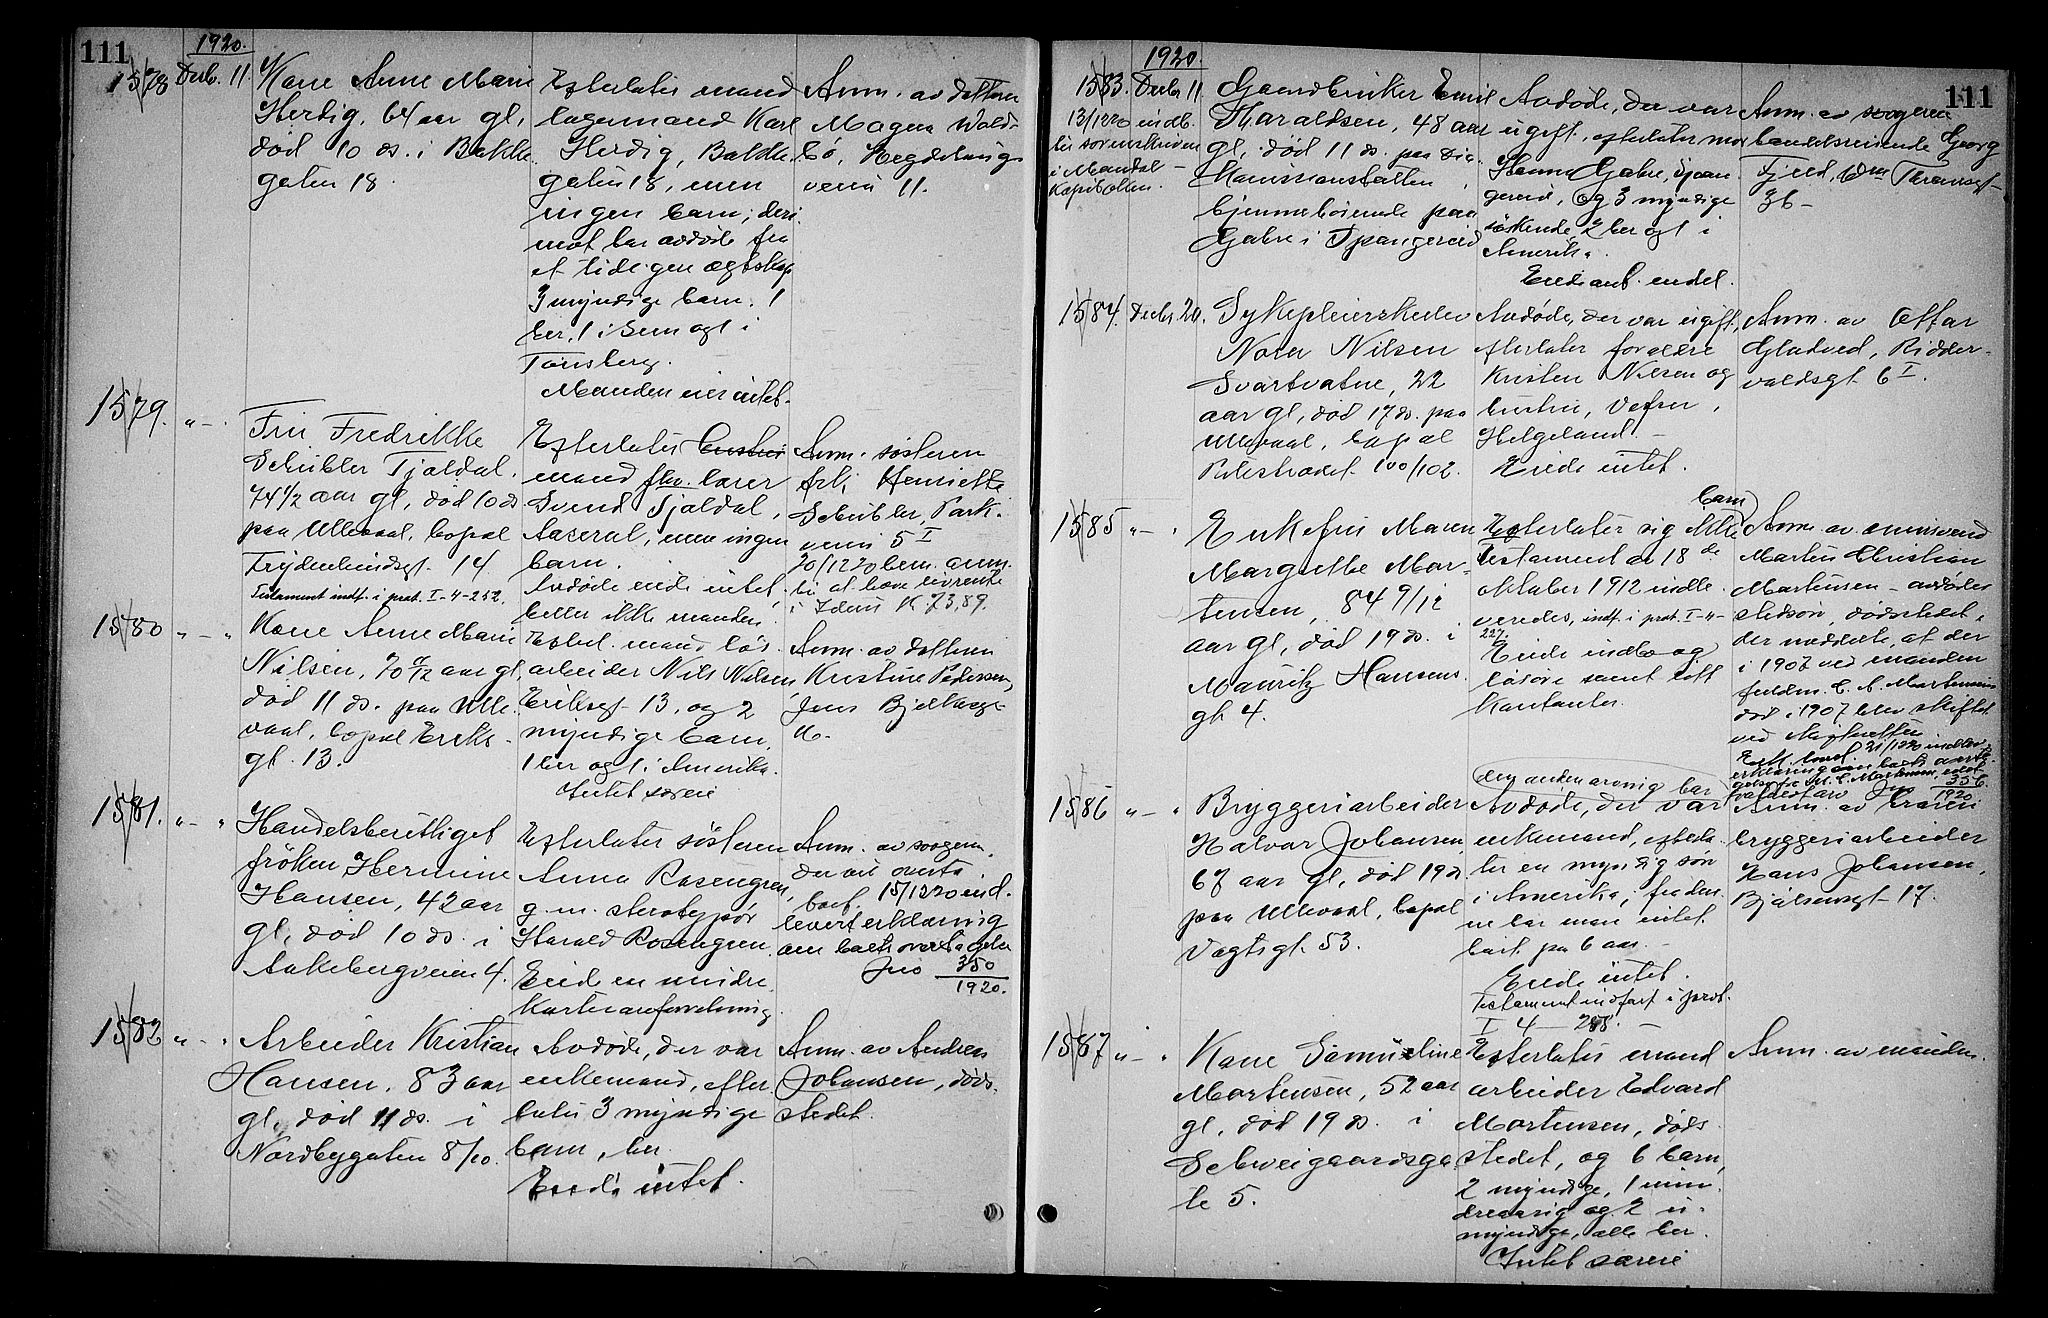 111
1920.
1578 Decb. 11.
Kone Anne Marie
Herdig, 64 aar gl,
død 10 ds. i Bakke
gaten 18.
Efterlater mand
lagermand Karl
Herdig, Bakke
gaten 18, men
ingen barn; deri
mot har avdøde fra
et tidligen ægteskap
3 myndige barn. 1
her, 1 i Sem og 1 i
Tønsberg.
Manden eier intet.
Anm. av datteren
Magna Wold-
bö,
veien 11.
1579. " — "
Fru Fredrikke
Schübler Tjaldal,
74 1/2 aar gl, død 10 ds
paa Ullevaal, bopæl
Frydenlundsgt. 14
Testament indf. i prot. I-4-252.
Efterlater
mand fhv. lærer
Svend Tjaldal,
Aaseral, men ingen
barn.
Avdøde eiede intet,
heller ikke manden.
Anm. søsteren
frk. Henriette
Schübler, Park-
veien 5 I
20/12 20 bem. anm.
at have livrente
i Idun K 73,89.
1580 " — "
Kone Anne Marie
Nilsen, 70 /12 aar gl,
død 11 ds. paa Ulle
vaal, bopæl Eriks-
gt. 13.
Efterl. mand løs
arbeider Nils Nilsen,
Eriksgt 13, og 2
myndige barn,
1 her og 1 i Amerika.
Intet særeie
Anm. av datteren
Kristine Pedersen,
Jens Bjelkesgt
16.
1581. " — "
Handelsberettiget
frøken Hermine
Hansen, 42 aar
gl, død 10 ds. i
Aakebergveien 4.
Efterlater søsteren
Anna Rosengren,
g. m. sterotypør
Harald Rosengren.
Eied en mindre
kortevareforretning
Anm. av svogeren,
der vil overta
boet. 15/12 20 ind-
levert erklæring
om boets overtagelse
Jno 350
1920.
1582 " — "
Arbeider Kristian
Hansen, 83 aar
gl, død 11 ds. i
Nordbygaten 8/10.
Avdøde, der var
enkemand, efter
later 3 myndige
barn, her.
Eiede intet.
Anm. av Andrea
Johansen, døds-
stedet.
111
1920.
1583. Decbr 11
13/12 20 indb.
til sorenskriveren
i Mandal
Kapitollen.
Gaardbruker Emil
Haraldsen, 48 aar
gl, død 11 ds. paa Dia-
konissanstalten,
hjemmehörende paa
Gahre i Spangereid
Avdøde, der var
ugift, efterlater mor
Hanna Gahre, Span
gereid, og 3 myndige
søskende, 2 her og 1 i
Amerika.
Eiedi ant. endel.
Anm. av svogeren
handelsreisende Georg
Fjeld,
36 —
1584. Decbr 20.
Sykepleierskeelev
Nora Nilsen
Svartvatne, 22
aar gl, død 17 ds. paa
Ullevaal, bopæl
Pilestrædet 100/102.
Avdøde, der var ugift,
efterlater forældre
Kristen Nilsen og
hustru, Vefsn,
Helgeland. —
Eiede intet.
Anm. av Ottar
Gladved, Ridder-
voldsgt 6 I.
1585 " — "
Enkefru Maren
Margrethe Mar-
tensen, 84 9/12
aar gl, død 19 ds. i
Mauritz Hansens
gt 4.
Efterlater sig ikke barn
Testament av 18 de
oktober 1912 indle
veredes, indf. i prot. I-4-
227.
Eiede indbo og
løsöre samt litt
kontanter.
Anm. av
Martin Christian
Martensen — avdødes
stedsøn, dødsstedet,
der meddelte, at der
i 1907 ved manden
fuldm. C. A. Martensens
død i 1907 blev skiftet
ved
31/12 20 indlev.
erklæring om boets overta
gelse fra M. C. Martensen,
Jno 356
1920
1586 " — "
Bryggeriarbeider
Halvar Johansen,
67 aar gl, død 19 ds
paa Ullevaal, bopæl
Vogtsgt. 53.
Avdøde, der var
enkemand, efterla
ter en myndig søn
i Amerika; fra den
ne har man intet
hørt paa 6 aar. —
Eiede intet.
Testament indført i prot.
I 4 — 258.
Anm. av broren
bryggeriarbeider
Hans Johansen,
Bjølsensgt 17.
1587 " — "
Kone Samueline
Martensen, 52 aar
gl, død 19 ds. i
Schweigaardsga
te 5.
Efterlater mand
arbeider Edvard
Mortensen, døds
stedet, og 6 barn,
2 myndige, 1 min
dreaarig og 2 u-
myndige, alle her.
Intet særeie
Anm. av manden.